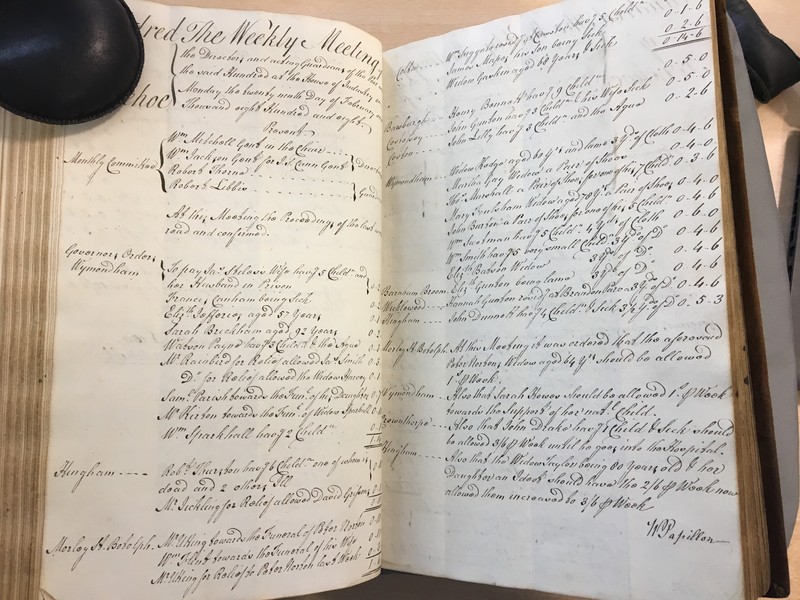 dred The Weekly Meeting
hoe
the Directors and acting Guardians of the Poor
the said Hundred at the House of Industry on
Monday the twenty ninth Day of February
Thousand eight Hundred and eight
Present
Monthly Committee
Wm. Mitchell Gent in the Chair
Wm. Jackson Gent for Gent
Robert Thorne
Robert
At this Meeting the Proceedings of the last were
read and confirmed.
Governors Orders
Wymondham
To pay Wife havg. 5 Child. and
her Husband in Prison
Frances Canham being Sick
Elizth. Jeffries aged 57 Years
Sarah Breckham aged 92 Years
Watson Payne havg. 3 Child. & the Ague
Mr. Rainbird for Relief allowed Smith
Do. for Relief allowed the Widow Harvey
Saml. towards the Funl. of his Daughter
Mr. towards the Funl. of Widow
Wm. Sparkhall havg. 2 Childn.
Hingham
Robt. havg. 6 Childn. one of whom is
dead and 2 others Ill
Mr. Sickling for Relief allowed David
Morley St. Botolph
Mr. Utting towards the Funeral of Peter Norton
Wm. towards the Funeral of his Wife
Mr. Utting for Relief to Peter Norton last Week
Colton
Wm. havg. 5 Childn. 0-1-6
James Mapes his Son being Sick 0-2-6
Widow Gaskin aged 69 Years & Sick 0-14-6
Bawburgh Henry Bennett havg. 9 Childn. 0-5-0
John Gunton havg. 3 Childn. & his Wife Sick 0-5-0
Coston John Lilly havg. 3 Childn. and the Ague 0-2-6
Wymondham
Widow Hodge aged 60 Ys. and lame 3 Yds. of Cloth 0-4-6
Martha Gay Widow a Pair of Shoes 0-4-0
Thos. Marshall a Pair of Shoes for one of his 7 Child. 0-3-6
Mary Widow aged 70 Ys. a Pair of Shoes 0-4-0
John Barton a Pair of Shoes for one of his 5 Childn. 0-4-0
Wm. havg. 5 Childn. 4 Yds. of Cloth 0-6-0
Wm. Smith havg. 5 very small Childn. 3 Yds. of Do. 0-4-6
Elizth. Babson Widow 3 Yds. of Do. 0-4-6
Barnham Broom Elizth. Gunton being lame 3 Yds. of Do. 0-4-6
Wicklewood Hannah Gunton residg. at Brandon Parva 3 Yds. of Do. 0-4-6
Hingham John Dunnett havg. 4 Childn. & Sick 3½ Yds. of Do. 0-5-3
Morley St. Botolph
At this Meeting it was ordered that the aforesaid
Peter Nortons Widow aged 64 Ys. should be allowed
℔ Week.
Wymondham
Also that Sarah Howes should be allowed 1s. ℔ Week
towards the Support of her natl. Child.
Crownthorpe
Also that John Drake havg. 4 Childn. & Sick should
be allowed 3/6 ℔ Week until he goes into the Hospital.
Hingham
Also that the Widow Taylor being 80 Years old & her
Daughter an Ideot should have the 2/6 ℔ Week now
allowed them increased to 3/6 ℔ Week
W. Papillon